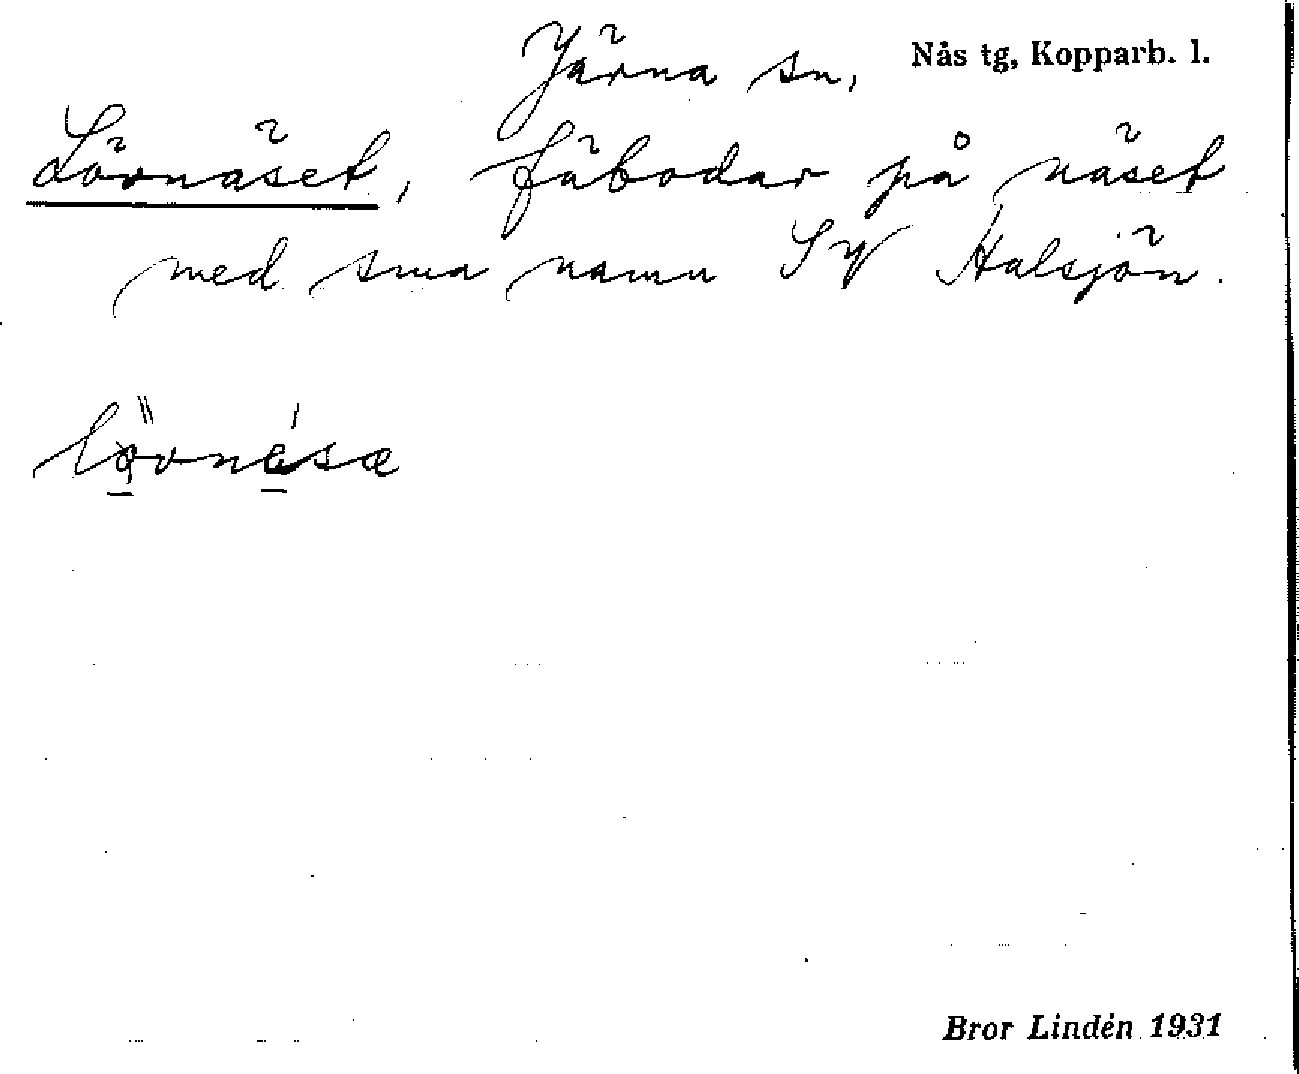 Järna sn, Nås tg, Kopparb. l.
Lövnäset, fäbodar på näset
med sma namn SV Halsjön.
Bror Lindén 1931